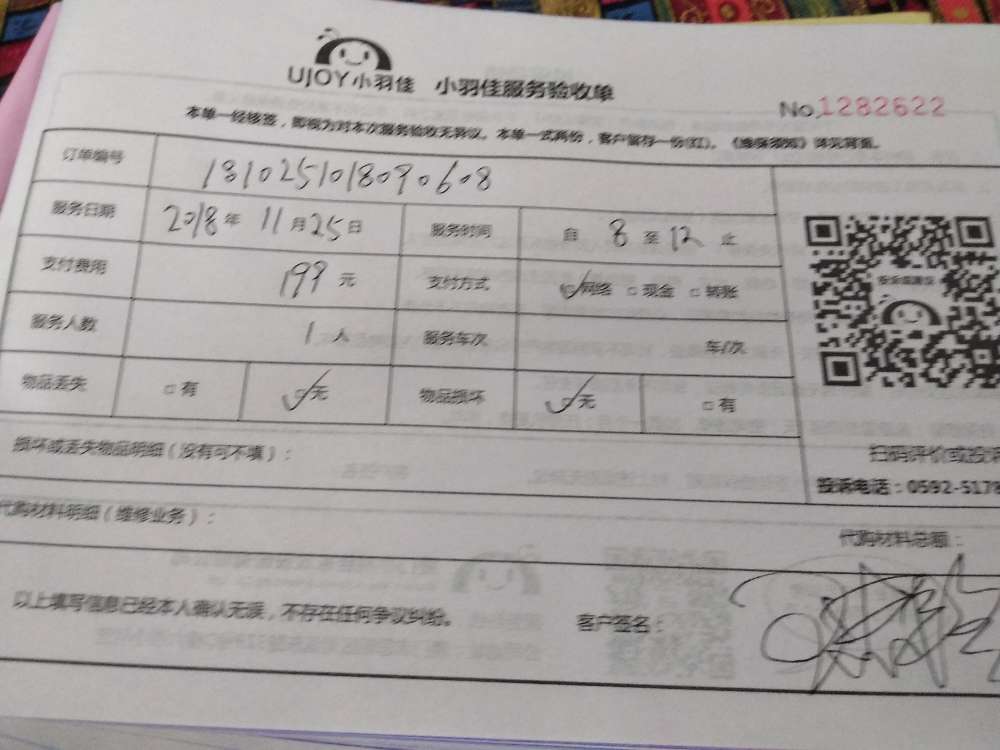 UJOY小羽佳 小羽佳服务验收单
No.1282622
本单一经修签,即视为对本次服务验收无异议。本单一式两份,客户留存一份(红)。《维保须知》详见背面。
订单编号
服务日期 2018年 11月25日 服务时间 自 8 至 12 止
支付费用 199 元 支付方式 网络 □现金 □转账
服务人数 1 人 服务车次 车/次
物品丢失 □有 无 物品损坏 无 □有
损坏或丢失物品明细(没有可不填):
扫码评价或投诉
投诉电话:0592-5178
代购材料明细(维修业务):
代购材料总额:
以上填写信息已经本人确认无误,不存在任何争议纠纷。 客户签名: